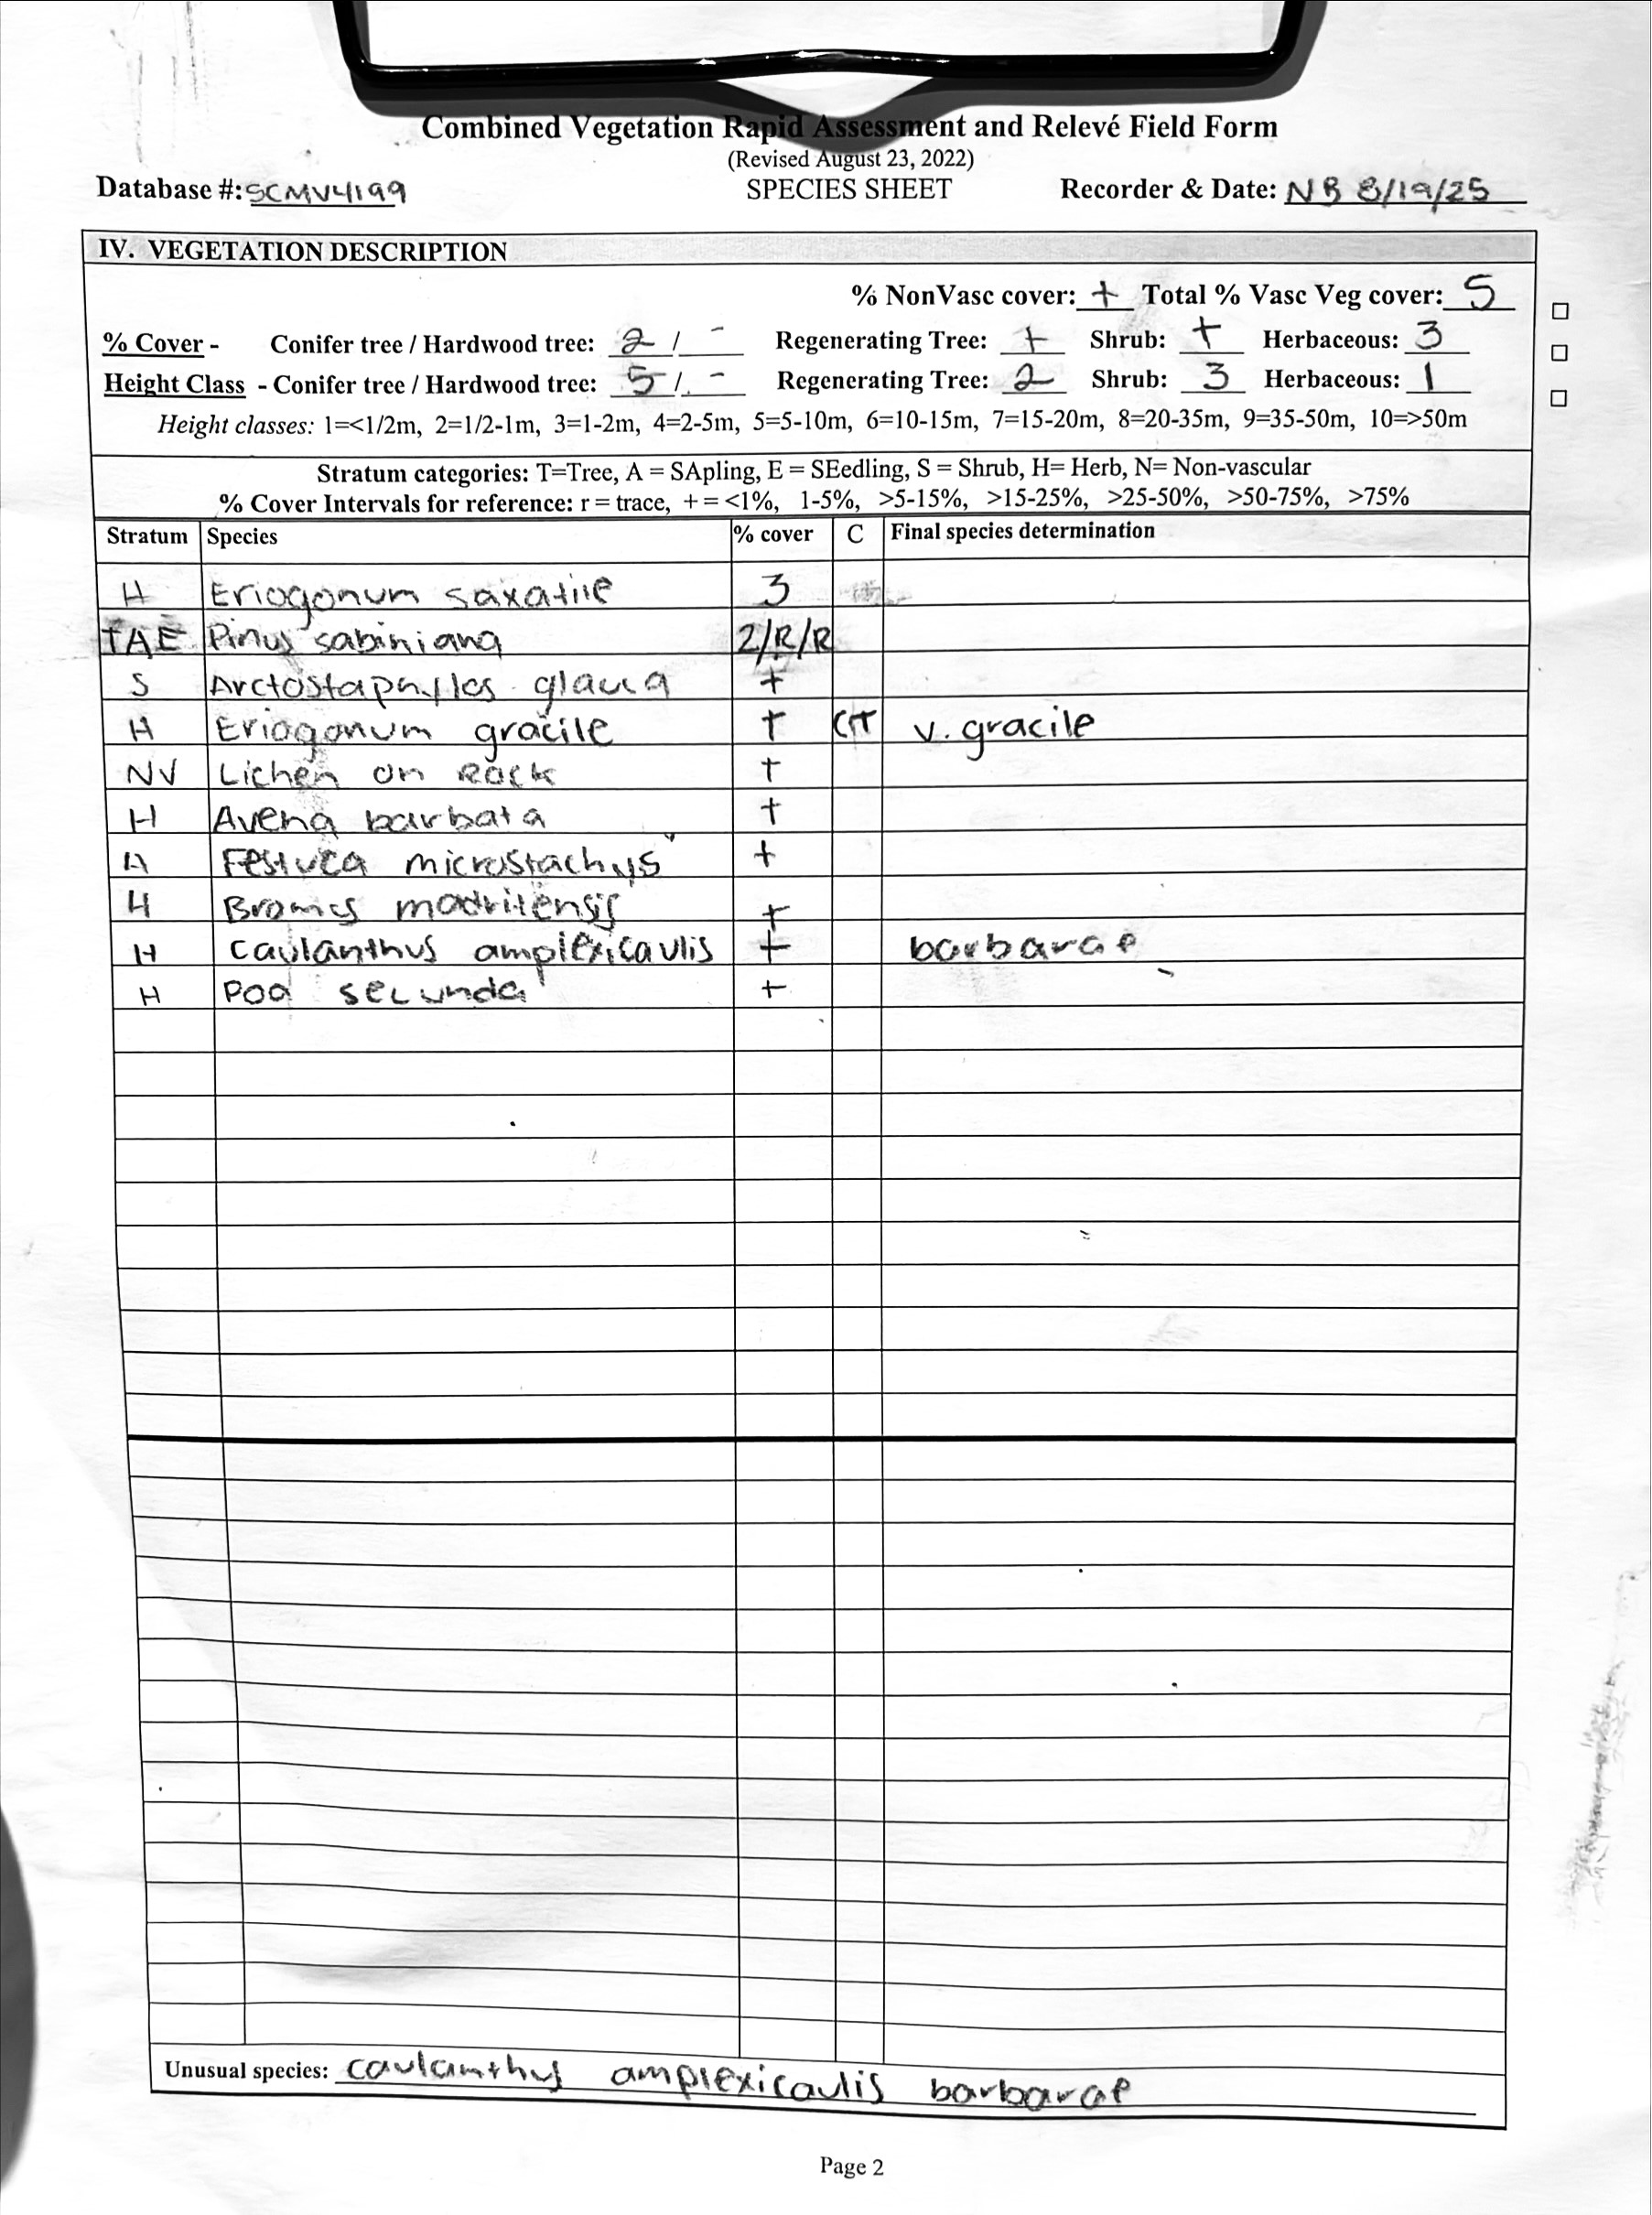 Combined Vegetation Rapid Assessment and Relevé Field Form
(Revised August 23, 2022)
Database #: SCMV4199 SPECIES SHEET Recorder & Date: NB 8/19/25
IV. VEGETATION DESCRIPTION
% NonVasc cover: + Total % Vasc Veg cover: 5
% Cover - Conifer tree / Hardwood tree: 2 / - Regenerating Tree: + Shrub: + Herbaceous: 3
Height Class - Conifer tree / Hardwood tree: 5 / - Regenerating Tree: 2 Shrub: 3 Herbaceous: 1
Height classes: 1=<1/2m, 2=1/2-1m, 3=1-2m, 4=2-5m, 5=5-10m, 6=10-15m, 7=15-20m, 8=20-35m, 9=35-50m, 10=>50m
Stratum categories: T=Tree, A = SApling, E = SEedling, S = Shrub, H= Herb, N= Non-vascular
% Cover Intervals for reference: r = trace, + = <1%, 1-5%, >5-15%, >15-25%, >25-50%, >50-75%, >75%
Stratum Species % cover C Final species determination
H Eriogonum saxatile 3
TAE Pinus sabiniana 2/R/R
S Arctostaphylos glauca +
H Eriogonum gracile + v. gracile
NV Lichen on Rock +
H Avena barbata +
H Festuca microstachys +
H Bromus madritensis +
H Caulanthus amplexicaulis + barbarae
H Poa secunda +
Unusual species: caulanthus amplexicaulis barbarae
Page 2